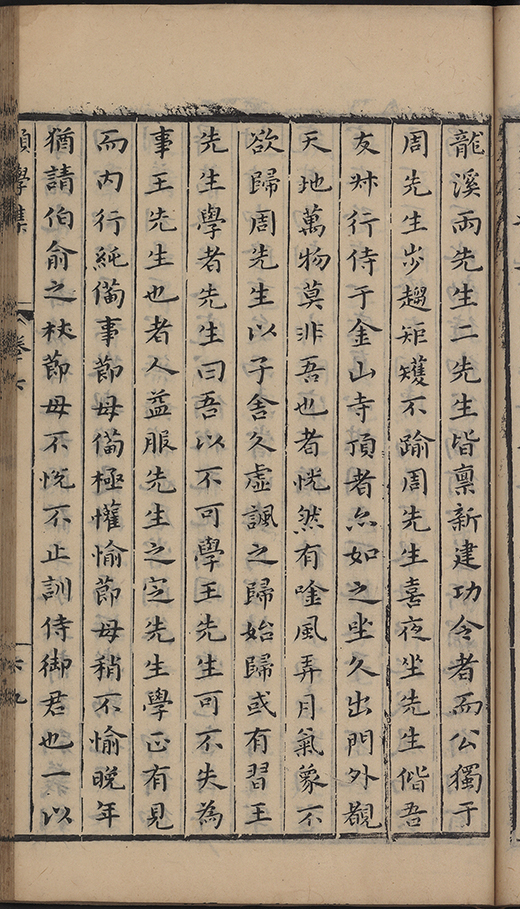 龍溪兩先生二先生皆稟新建功令者而公獨于
周先生步趨矩矱不踰周先生喜夜坐先生偕吾
友井行侍于金山寺頂者亦如之坐久出門外覩
天地萬物莫非吾也者恍然有唫風弄月氣象不
欲歸周先生以子舍久虛諷之歸始歸或有習王
先生學者先生曰吾以不可學王先生可不失為
事王先生也者人益服先生之定先生學正有見
而內行純僃事節母僃極懽愉節母稍不愉晚年
猶請伯俞之杖節母不悅不止訓侍御君也一以
學集
卷六
六九